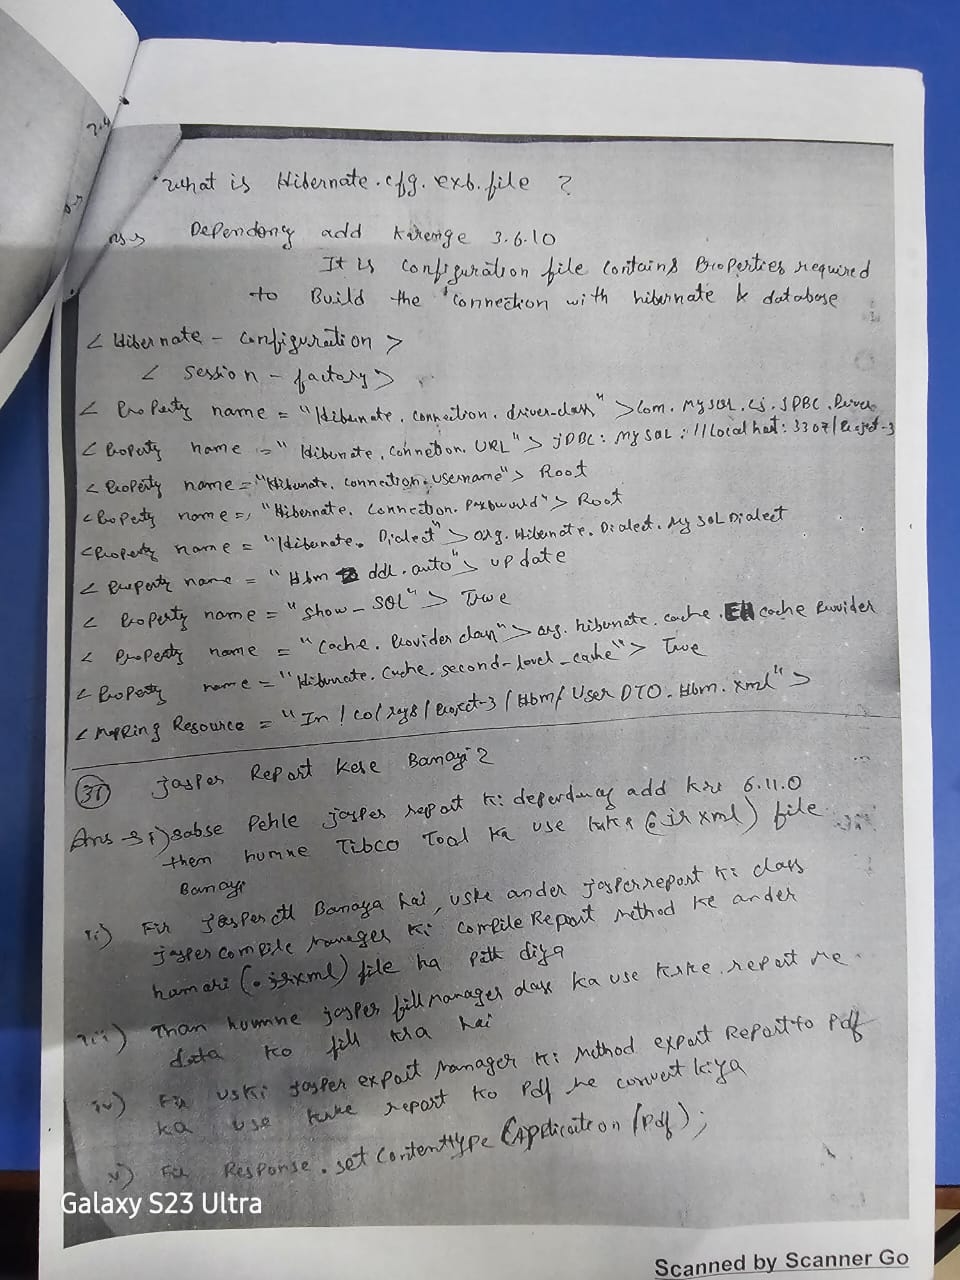 What is Hibernate.cfg.exb.file ?
Ans Dependancy add karenge 3.6.10
It is configuration file contains Properties required
to Build the connection with hibernate & database
< Hibernate - configuration >
< session - factory >
< Property name = "Hibernate. connection. driver-class" > Com. MySQL. cj. JDBC. Driver
< Property name = "Hibernate. connection. URL" > jDBC: MySQL: // Local hat: 3307/ Project-3
< Property name = "Hibernate. connection. username" > Root
< Property name = "Hibernate. Connection. Password" > Root
< Property name = "Hibernate. Dialect" > org. Hibernate. Dialect. My SQL Dialect
< Property name = "Hbm ddl. auto" > update
< Property name = "show - SQL" > True
< Property name = "Cache. Provider class" > org. hibernate. cache. EH cache Provider
< Property name = "Hibernate. Cache. second-level-cache" > True
< Mapping Resource = "In / Co / rays / Project-3 / Hbm / User DTO. Hbm. xml" >
Jasper Report Kese Banayi ?
Ans → i) Sabse Pehle jasper report ki dependancy add kri 6.11.0
then humne Tibco Tool ka use krke (.jrxml) file
Banayi
ii) Fir Jasper ctl Banaya hai, uske ander jasperreport ki class
jasper compile manager ki compile Report method ke ander
hamari (.jrxml) file ka path diya
iii) Than humne jasper fill manager class ka use krke report me
data ko fill kra hai
iv) Fir uski jasper export manager ki method export Report to pdf
ka use krke report ko Pdf me convert kiya
v) Fir Response. set Contenttype (Application / pdf);
Galaxy S23 Ultra
Scanned by Scanner Go